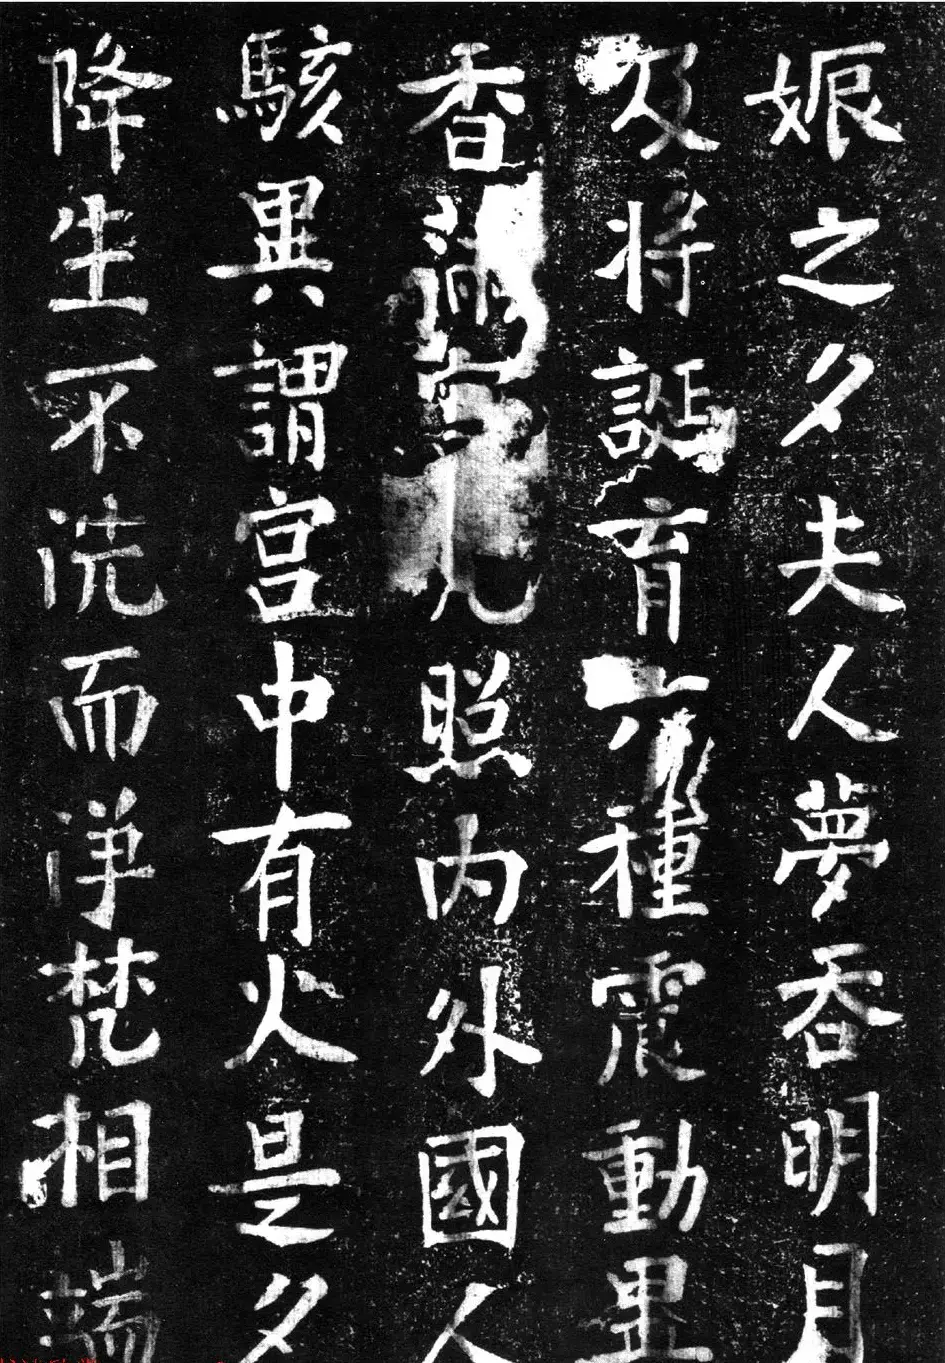 娠之夕夫人夢吞明月
及将誕育六種震動異
香滿宮光照内外國人
駭異謂宮中有火是夕
降生不洗而淨梵相端